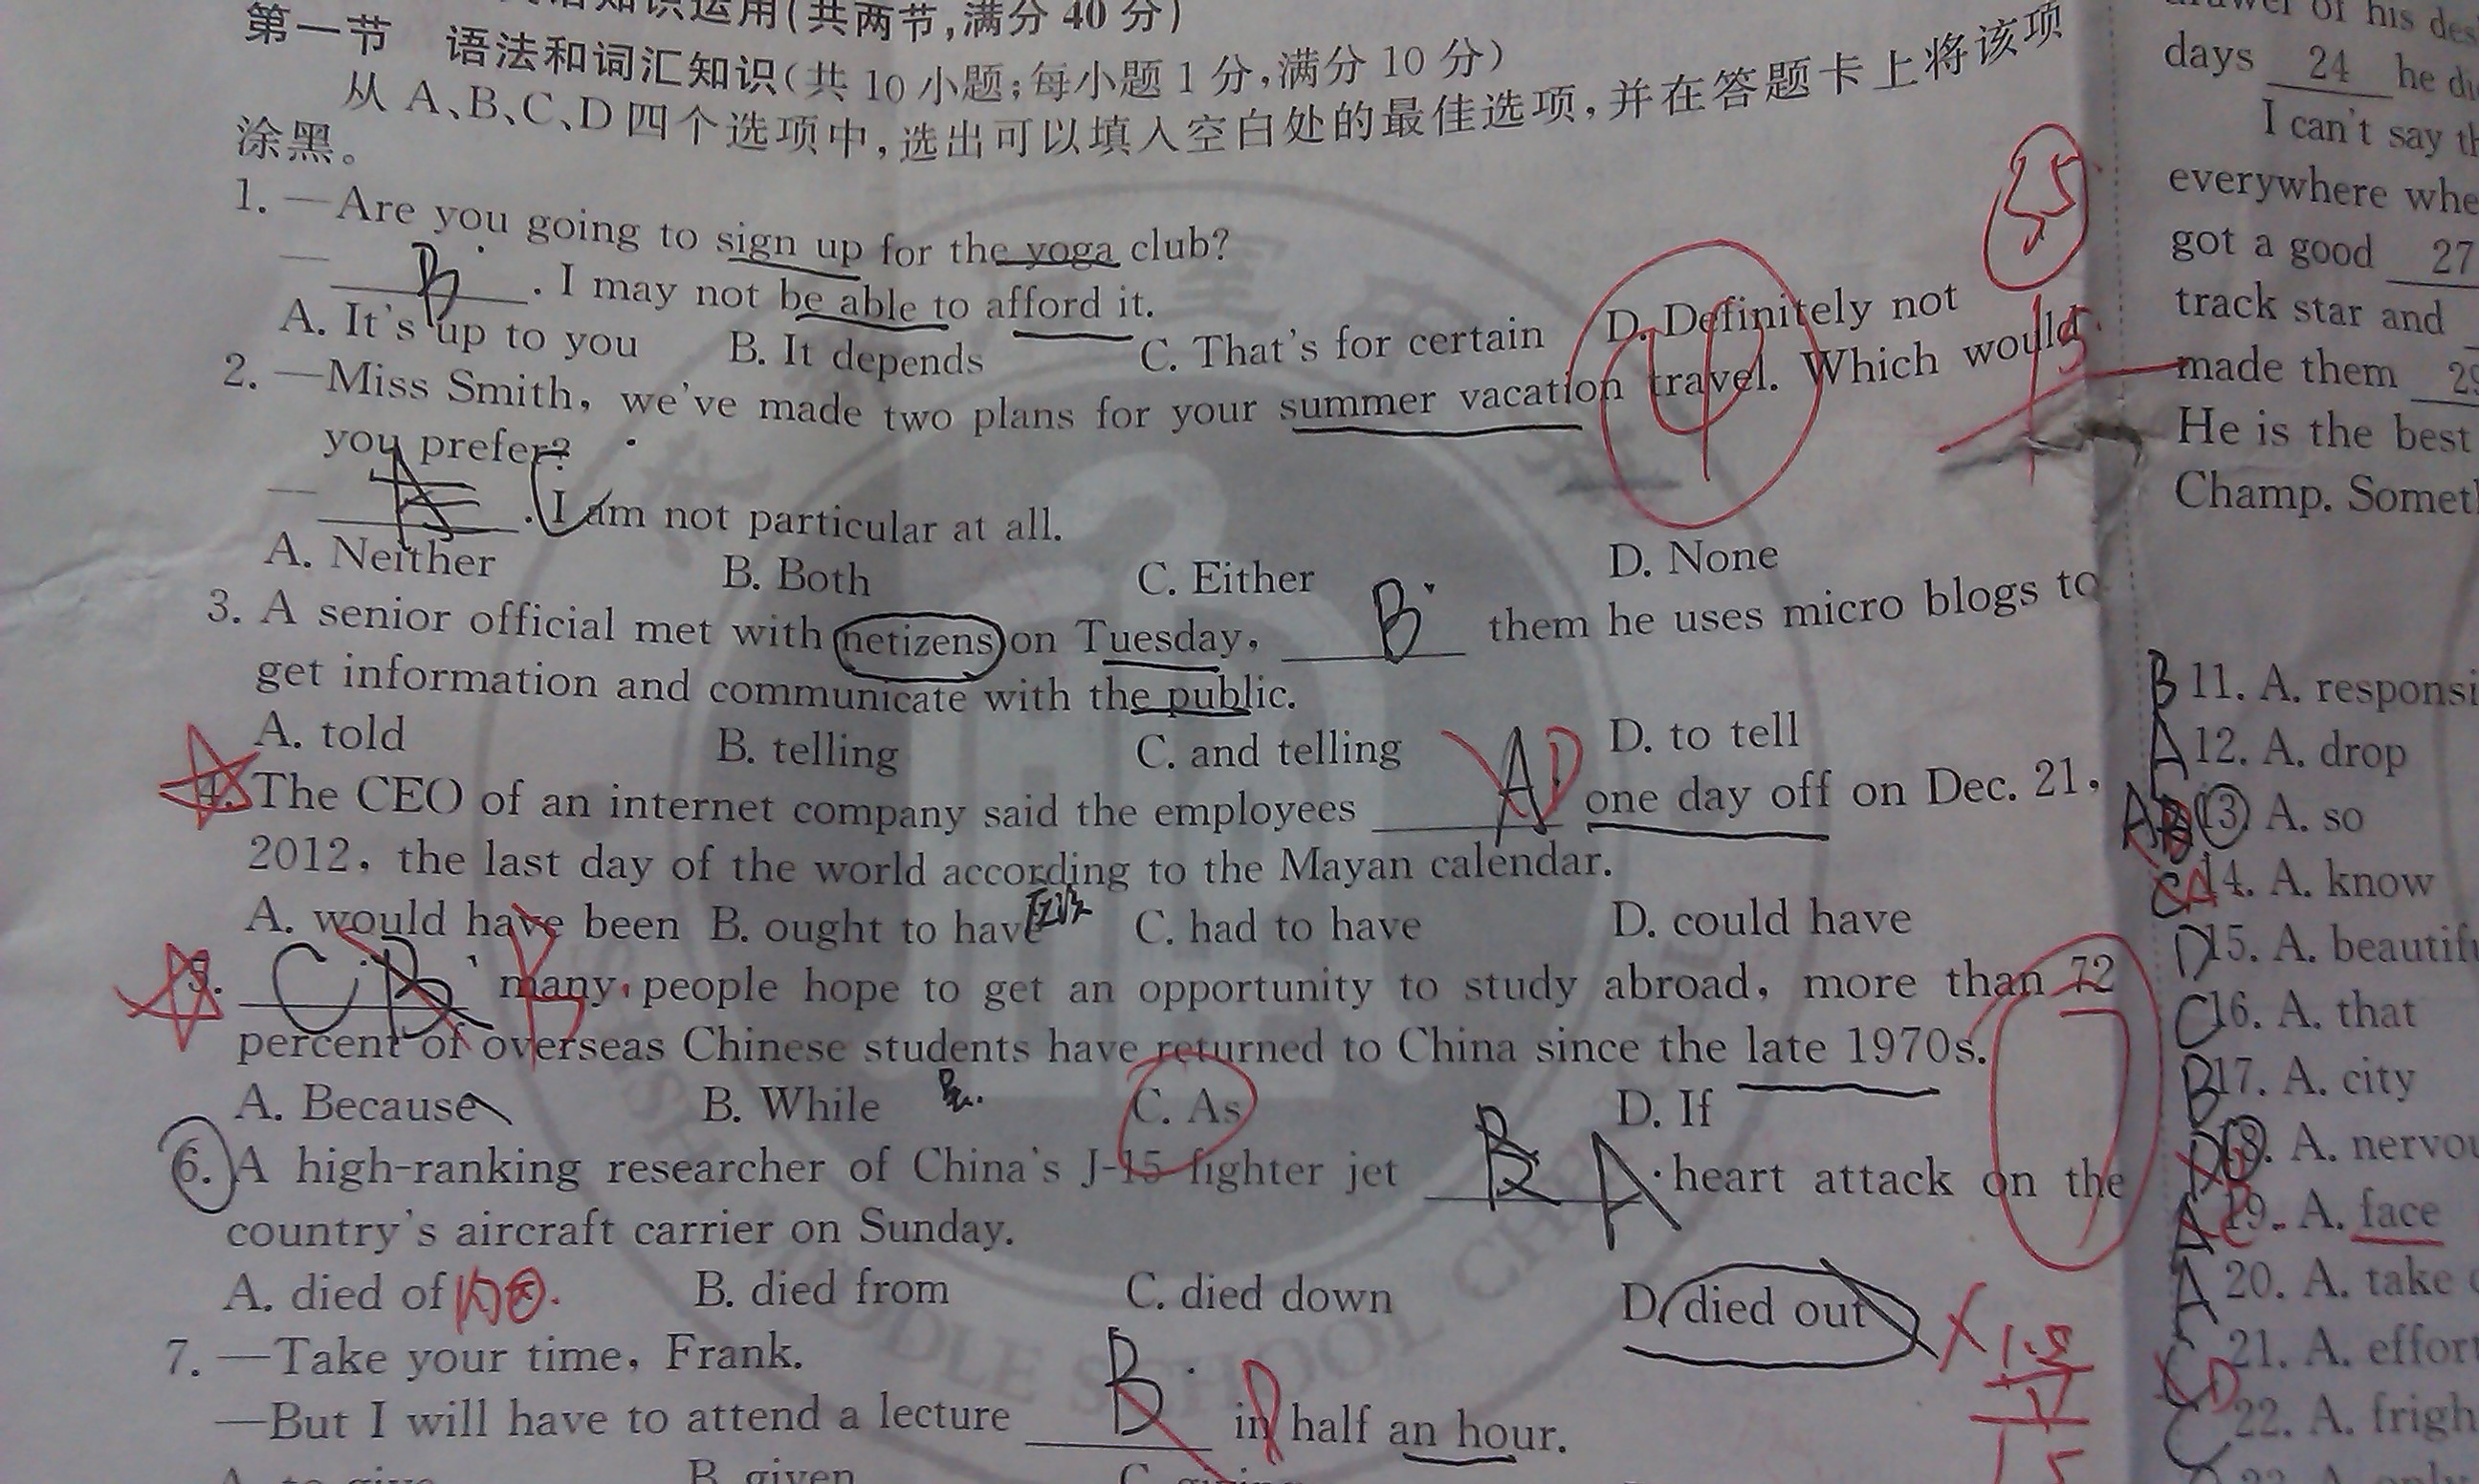 知识运用(共两节,满分40分)
第一节 语法和词汇知识(共10小题;每小题1分,满分10分)
从A、B、C、D四个选项中,选出可以填入空白处的最佳选项,并在答题卡上将该项
涂黑。
1. —Are you going to sign up for the yoga club?
— B . I may not be able to afford it.
A. It's up to you B. It depends C. That's for certain D. Definitely not
2. —Miss Smith, we've made two plans for your summer vacation travel. Which would
you prefer?
— . I am not particular at all.
A. Neither B. Both C. Either D. None
3. A senior official met with netizens on Tuesday, B them he uses micro blogs to
get information and communicate with the public.
A. told B. telling C. and telling D. to tell
4. The CEO of an internet company said the employees A D one day off on Dec. 21,
2012, the last day of the world according to the Mayan calendar.
A. would have been B. ought to have C. had to have D. could have
5. C B B many people hope to get an opportunity to study abroad, more than 72
percent of overseas Chinese students have returned to China since the late 1970s.
A. Because B. While C. As D. If
6. A high-ranking researcher of China's J-15 fighter jet B A heart attack on the
country's aircraft carrier on Sunday.
A. died of 内因 B. died from C. died down D. died out
7. —Take your time, Frank.
—But I will have to attend a lecture B D in half an hour.
B. given
of his des
days 24 he
I can't say
everywhere
got a good 27
track star and
made them
He is the best
Champ.
B 11. A.
A 12. A. drop
13. A. so
14. A. know
D 15. A.
C 16. A. that
B 17. A. city
18. A.
A 19. A. face
A 20. A. take
21. A.
C 22. A.